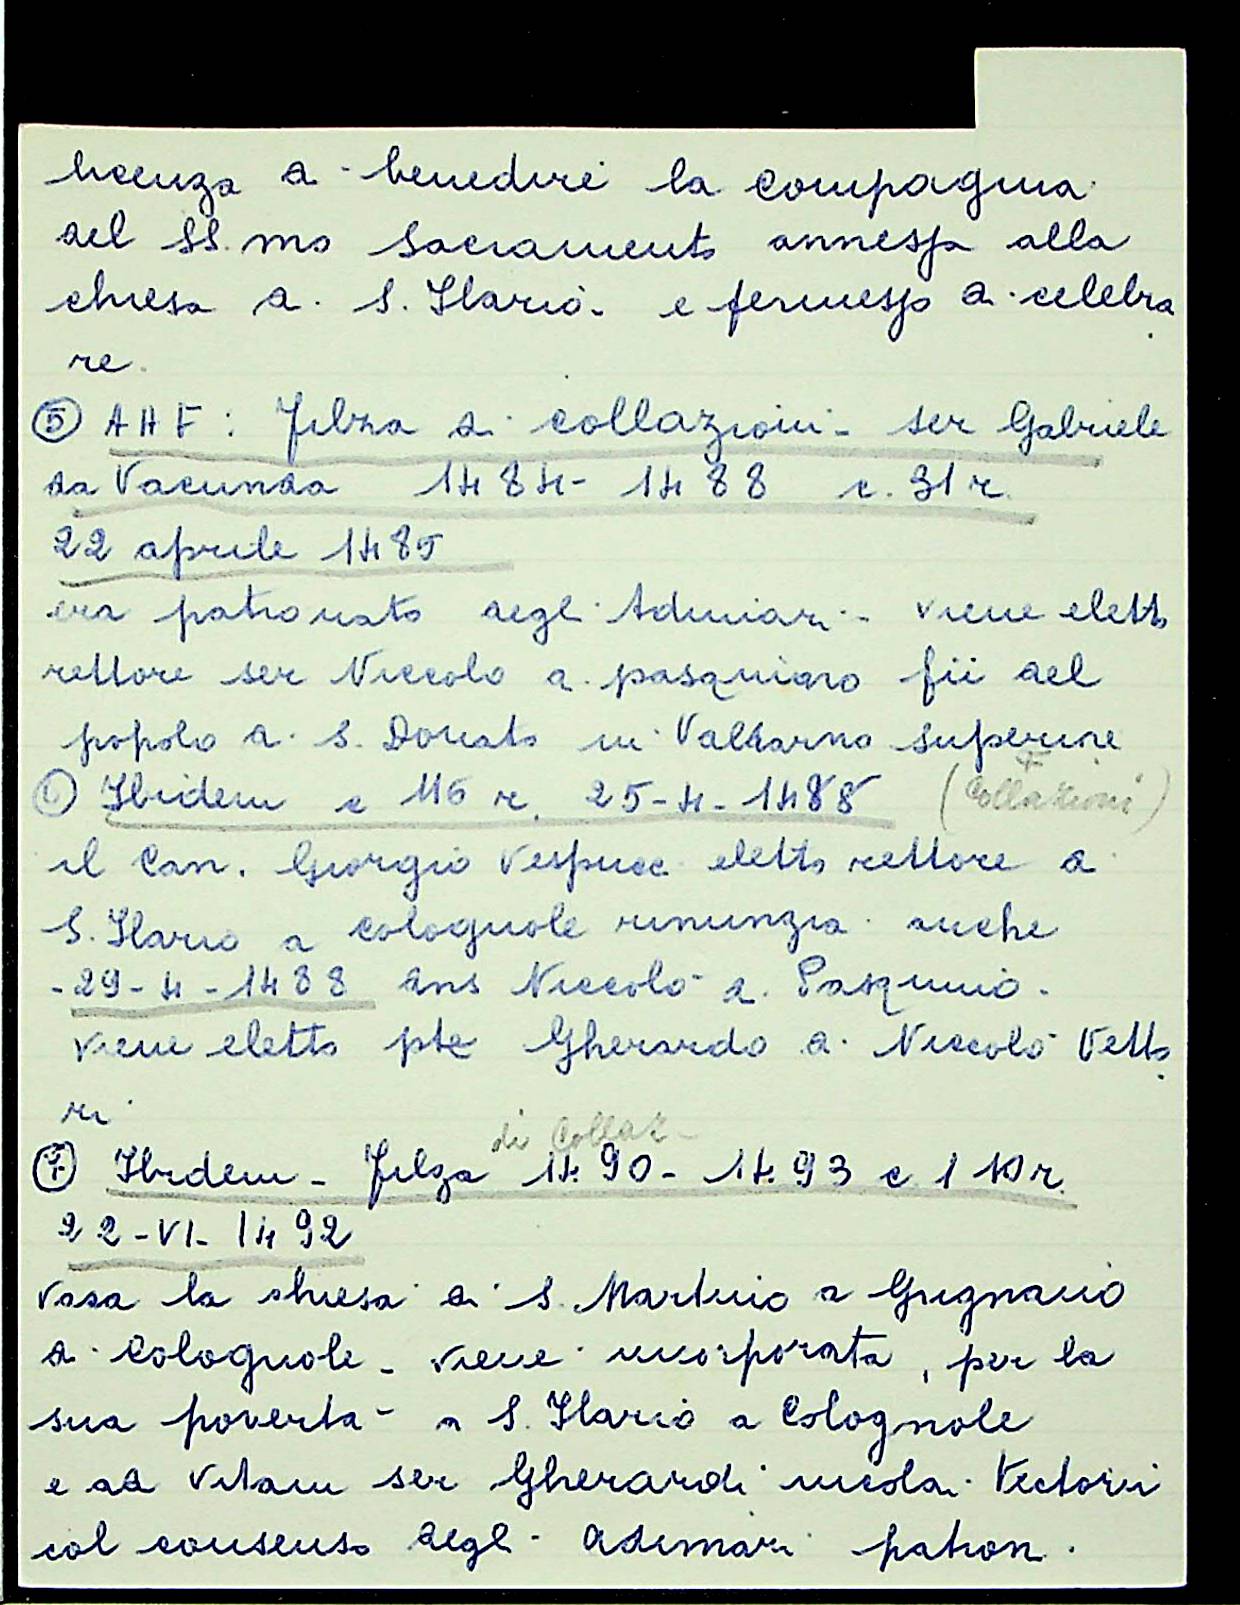 licenza di benedire la compagnia
del SS.mo Sacramento annessa alla
chiesa di S. Ilario - e permesso di celebra
re.
⑤ AAF: Filza di collazioni - ser Gabriele
da Vacunda 1484-1488 c. 31 r.
22 aprile 1485
era patronato degli Adimari - viene eletto
rettore ser Niccolo di pasquino fii del
popolo di S. Donato in Valdarno superiore
⑥ Ibidem c 116 r. 25-4-1488 (F Collazioni)
il Can. Giorgio Vespucci eletto rettore di
S. Ilario a colognole rinunzia anche
-29-4-1488 Niccolò di Pasquino -
viene eletto pte Gherardo di Niccolò Vetto
ri
⑦ Ibidem - Filza di Collaz - 1490-1493 c
22-VI-1492
la chiesa di S. Martino a Grignano
a Colognole - viene incorporata, per la
sua povertà - a S. Ilario a Colognole
e ad vitam ser Gherardi nicolai Vectorii
col consenso degli Adimari patroni.